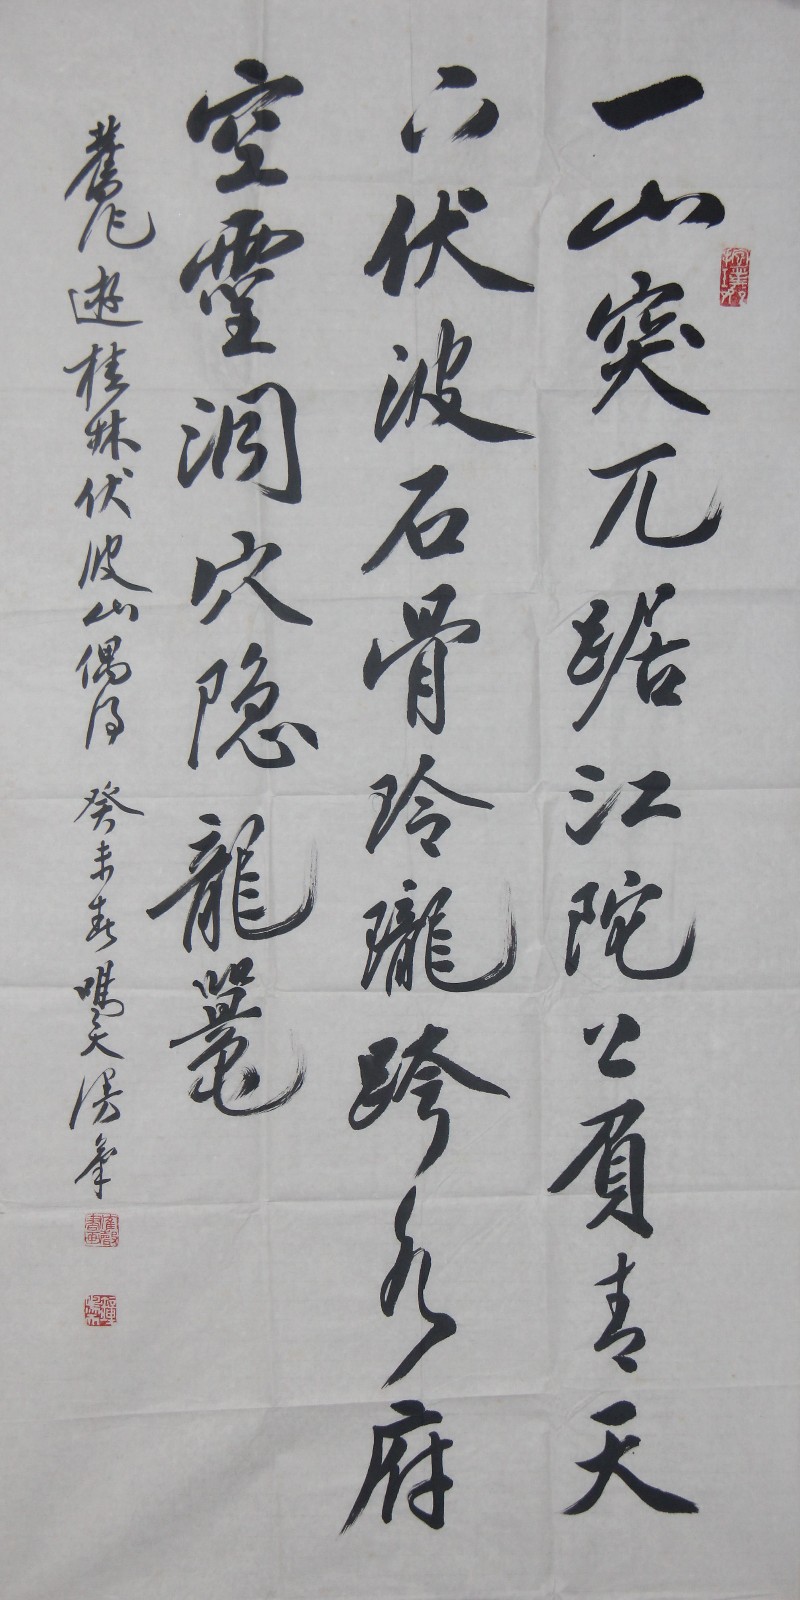 一山突兀踞江陀上負青天
下伏波石骨玲瓏跨水府
空靈洞穴隐龍鼉
舊作遊桂林伏波山偶得 癸未春鳴天漫筆